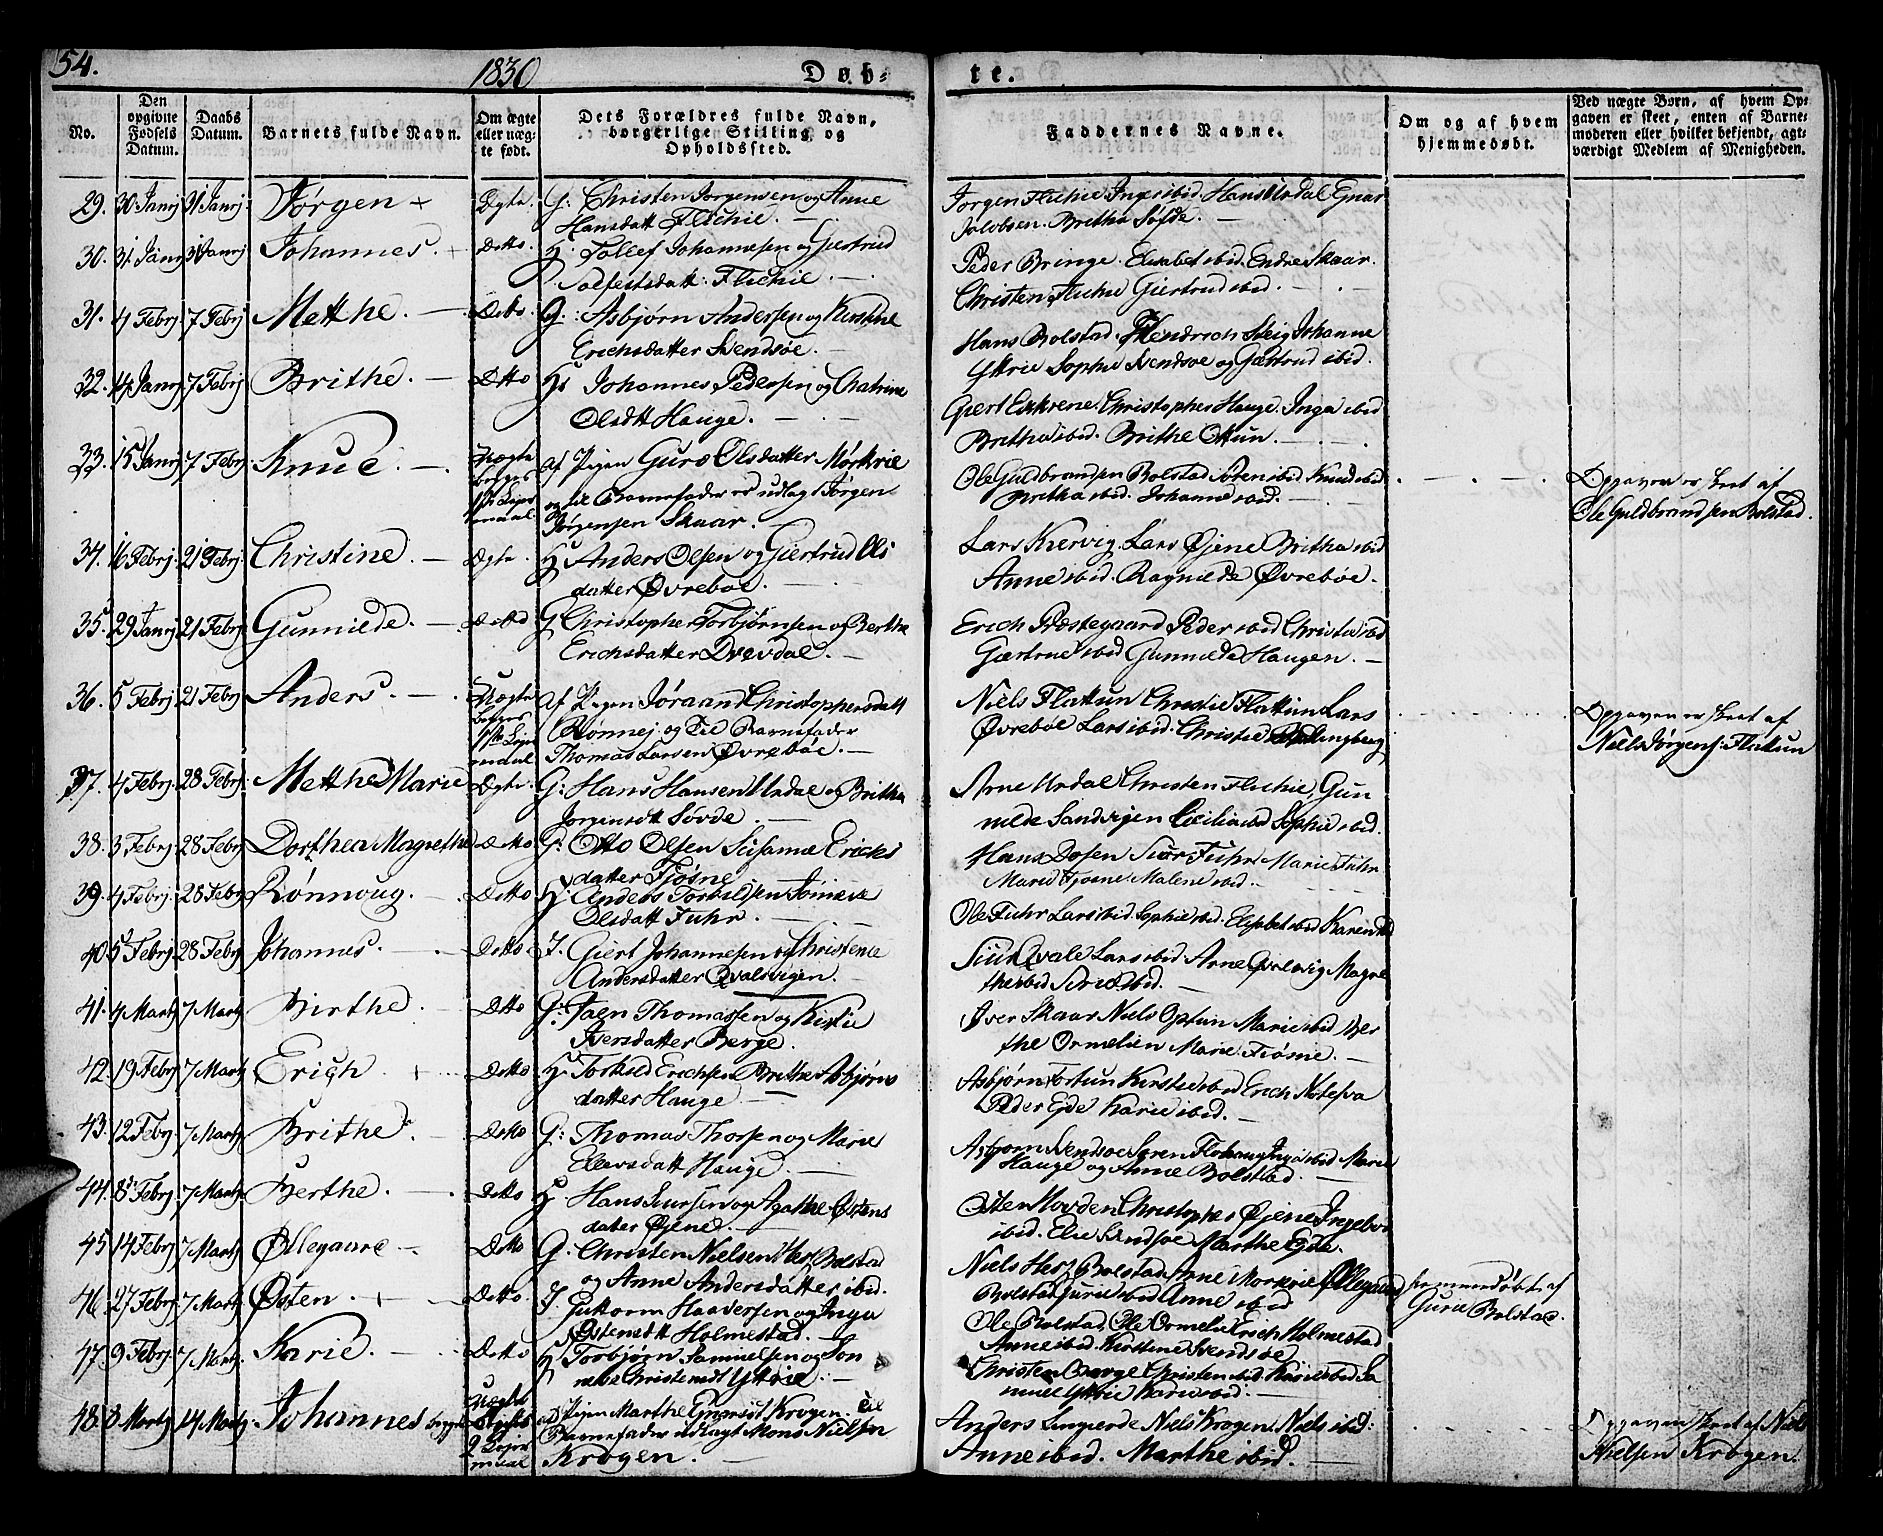 54.
1830
Døb-
te.
No.
Den opgivne Fødsels Datum.
Daabs Datum.
Barnets fulde Navn.
Om ægte eller uæg-te født.
Dets Forældres fulde Navn, borgerlige Stilling og Opholdssted.
Faddernes Navne.
Om og af hvem hjemmedøbt.
Ved uægte Børn, af hvem Op-gaven er skeet, enten af Barne-moderen eller hvilket bekjendt, agt-værdigt Medlem af Menigheden.
29. 30 Janrj 31 Janrj Jørgen + Ægte. G: Christen Jørgensen og Anne
Hansdatt Flichie.
Jørgen Flichie Inge ibid. Hans Urdal Enar
Jacobsen. Britha Søfde.
30. 31 Janrj 31 Janrj Johannes. + Ditto. H: Tollef Johannesen og Giertrud
datt: Flichie.
Peder Bringe. Elisabet ibid. Endre Skaar.
Christen Flichie Giertrud ibid.
31. 4 Febrj 7 Febrj Metthe. Ditto. G: Asbjørn Andersen og Kirstine
Erichsdatter Svendsøe.
Hans Bolstad. Hendrich Steig Johanne
Yttrie Sophie Svendsøe og Giertrud ibid.
32. Janrj 7 Febrj Brithe. Ditto H: Johannes Pedersen og Chatrine
Olsdtt Hauge.
Giert Christopher Hauge. Inga ibid
Britha ibid. Brithe Ottun.
33. 15 Janrj 7 Febrj Knud. Uægte begges 1ste Leiermaal. af Pigen Guro Olsdatter Mørkrie
og til Barnefader er udlagt Jørgen
Jørgensen Skaar.
Ole Guldbrandsen Bolstad ibid. Knud ibid
Britha ibid. Johanne ibid.
Opgaven er skeet af
Ole Guldbrandsen Bolstad.
34. 16 Febrj. 21 Febrj. Christine. Ægte. H: Anders Olsen og Giertrud Ols
datter Øvrebøe.
Lars Kervig. Lars Øjene Britha ibid
Anne ibid. Ragnilde Øvrebøe.
35. 29 Janrj 21 Febrj. Gunnilde. Ditto G Christopher Torbjørnsen og Berthe
Erichsdatter Drevdal.
Erich Præstegaard Peder ibid Christie ibid
Giertrue ibid Gunnilde Haugen.
36. 5 Febrj 21 Febrj Anders. Uægte begges 1ste Leiermaal af Pigen Jøraand Christophersdatt
Rønnej og Til Barnefader
Thomas Larsen Øvrebøe.
Niels Flattun Christie Flattun Lars
Øvrebøe Lars ibid. Christie
Opgaven er skeet af
Niels Jørgens: Flattun
37. 4 Febrj. 28 Febrj. Metthe Marie Ægte. G: Hans Hansen Urdal og Britha
Jørgensdtt Søvde.
Arne Urdal Christen Flichie, Gun
nilde Sandvigen Cicilia ibid Sophie ibid.
38. 3 Febrj 28 Febrj Dorthea Magrethe Ditto G: Otto Olsen Susanne Erichs
datter Fjøsne
Hans Dosen Siur Fuhr. Marie Fuhr
Marie Fjøsne Malene ibid.
39. 4 Febrj. 28 Febrj Rønnoug. Ditto H: Anders Torkildsen
Olsdatt Fuhr.
Ole Fuhr Lars ibid. Sophie ibid. Elisabet ibid Karen ibid
40. 5 Febrj. 28 Febrj Johannes. Ditto J. Giert Johannesen og Christense
Andersdatter Qvalsvigen.
Siur Qvale Lars ibid. Arne Magre
the ibid ibid.
41. 4 Martj 7 Martj. Birthe. Ditto G: Jaen Thomassen og Kistie
Iversdatter Berge.
Iver Skaar Niels Optun Marie ibid Ber
the Ormelien Marie Fiøsne.
42. 19 Febrj 7 Martj Erich Ditto H Torkild Erichsen Brithe Asbjørns
datter Hauge
Asbjørn Fortun Kirstie ibid Erich
Peder Eide Karie ibid.
43. 12 Febrj 7 Martj. Brithe Ditto G: Thomas Thorsen og Marie
datt Hauge.
Asbjørn Svendsøe Søren Inga ibid Marie
Hauge og Anne Bolstad.
44. 8 Febrj. 7 Martj Berthe. Ditto H Hans Siursen og Agathe Østens
datter Øjene.
Østen Christopher Øjene Ingebor
ibid. Elie Svendsøe Marthe Eide.
45 14 Febrj 7 Martj Øllegaare Ditto G: Christen Nielsen Herz Bolstad
og Anne Andersdatter ibid.
Niels Herz Bolstad Arne Mørkrie Øllegaard
Bolstad Guru ibid Anne ibid
hiemmedøbt af
Guru Bolstad.
46. 27 Febrj. 7 Martj Østen. Ditto. J. Guttorm Haaversen og Inga
Østensdtt Holmestad.
Ole Bolstad, Ole Ormelie Erich Holmestad
Anne ibid. Kirstine Svendsøe
47. 9 Febrj. 7 Martj Karie. Ditto H Torbjørn Samuelsen og Son
neve Christensdtt Yttrie.
Christen Berge Christen ibid. Karie ibid Sa
muel Yttrie Karie ibid.
48. 8 Martj 14 Martj. Johannes Uægte 2 Leiermaal af Pigen Marthe Enarsdt Krogen. Til
Barnefader udlagt Mons Nielsen
Krogen.
Anders Niels Krogen. Niels ibid:
Anne ibid. Marthe ibid.
Opgaven skeet af Niels
Nielsen Krogen.